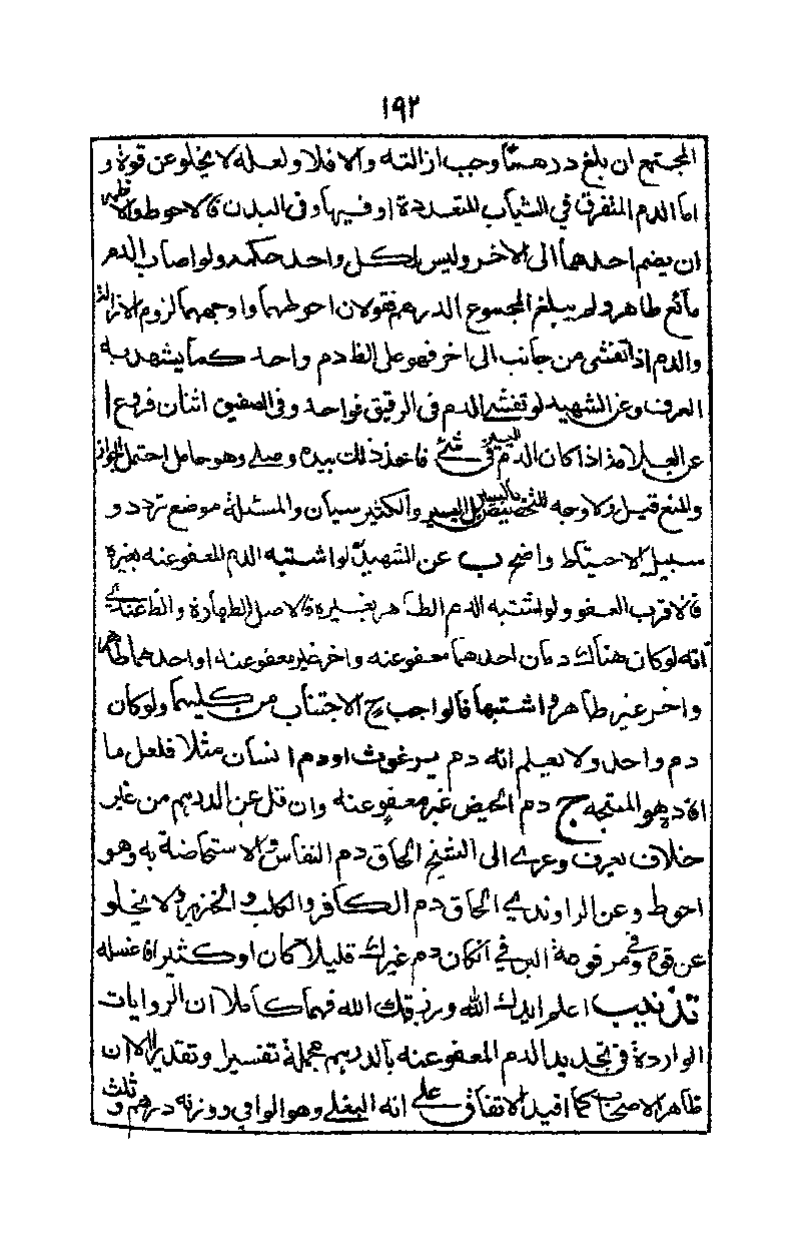 ١٩٢
المجتمع ان بلغ درهما وجب ازالته والا فلا ولعله لا يخلو عن قوة و
اما الدم المتفرق في الثياب المتعددة او فيها وفي البدن فالاحوط والاظهر
ان يضم احدهما الى الاخر وليس لكل واحد حكمه ولو اصاب الدم
مائع طاهر ولم يبلغ المجموع الدرهم فقولان احوطهما واوجههما لزوم الازالة
والدم اذا تفشى من جانب الى اخر فهو على الظ دم واحد كما يشهد به
العرف وعن الشهيد لو تفشى الدم في الرقيق فواحد وفي الصفيق اثنان فروع ا
عن العلامة اذا كان الدم اليسير في شئ فاخذ ذلك بيده وصلى وهو حامل احتمل الجواز
والمنع قيل ولا وجه للتخصيص باليسير بل اليسير والكثير سيان والمسئلة موضع تردد و
سبيل الاحتياط واضح ب عن الشهيد لو اشتبه الدم المعفو عنه بغيره
فالاقرب العفو ولو اشتبه الدم الطاهر بغيره فالاصل الطهارة والظ عندي
انه لو كان هناك دمان احدهما معفو عنه واخر غير معفو عنه او احدهما طاهر
واخر غير طاهر واشتبها فالواجب ح الاجتناب من كليهما ولو كان
دم واحد ولا يعلم انه دم برغوث او دم انسان مثلا فلعل ما
افاده هو المتجه ج دم الحيض غير معفو عنه وان قل عن الدرهم من غير
خلاف يعرف وعزي الى الشيخ الحاق دم النفاس والاستحاضة به وهو
احوط وعن الراوندي الحاق دم الكافر والكلب والخنزير ولا يخلو
عن قوة وفي مرفوعة البرقي ان كان دم غيرك قليلا كان او كثيرا فاغسله
تذنيب اعلم ايدك الله ورزقك الله فهما كاملا ان الروايات
الواردة في تحديد الدم المعفو عنه بالدرهم مجملة تفسيرا وتقديرا الا ان
ظاهر الاصحاب كما افيد الاتفاق على انه البغلي وهو الوافي ووزنه درهم وثلث